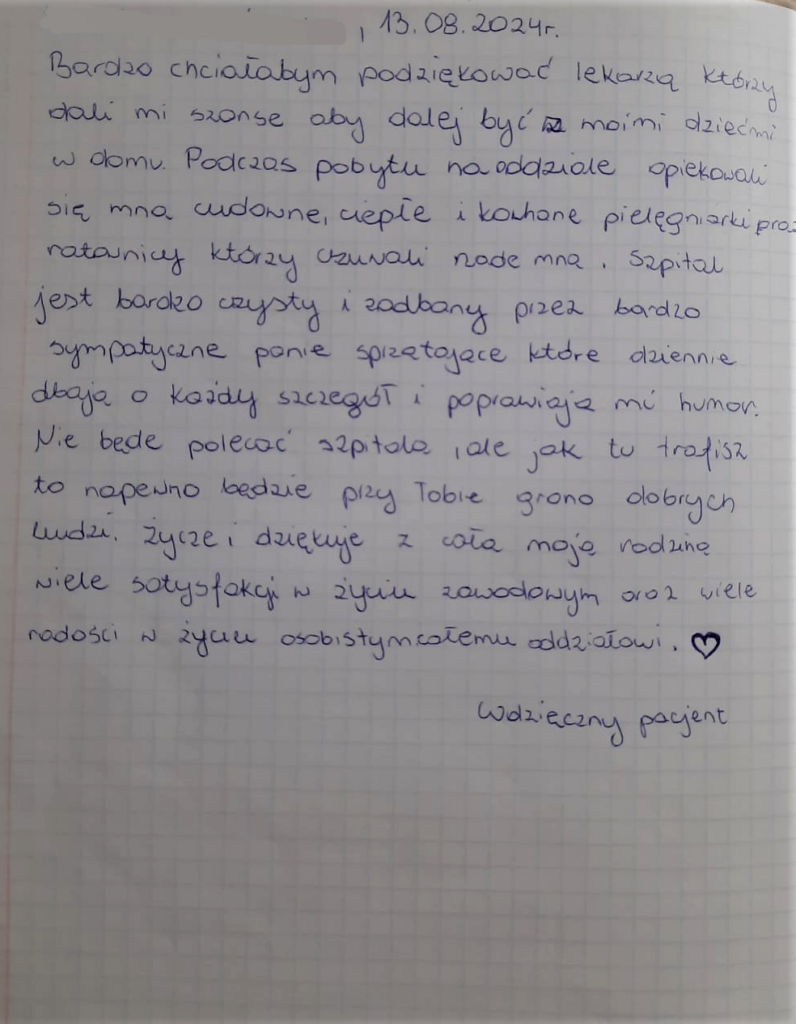 , 13.08.2024r.
Bardzo chciałabym podziękować lekarzą którzy
dali mi szonse aby dalej być z moimi dziećmi
w domu. Podczas pobytu na oddziale opiekowali
się mna cudowne, ciepłe i kochane pielęgniarki oraz
ratownicy którzy czuwali nade mna. Szpital
jest bardzo czysty i zadbany przez bardzo
sympatyczne panie sprzątające które dziennie
dbają o każdy szczegół i poprawiają mi humor.
Nie będe polecać szpitala, ale jak tu trafisz
to napewno będzie przy Tobie grono dobrych
ludzi. Życze i dziękuje z cała moją rodziną
wiele satysfakcji w życiu zawodowym oraz wiele
radości w życiu osobistym całemu oddziałowi. ♡
Wdzięczny pacjent